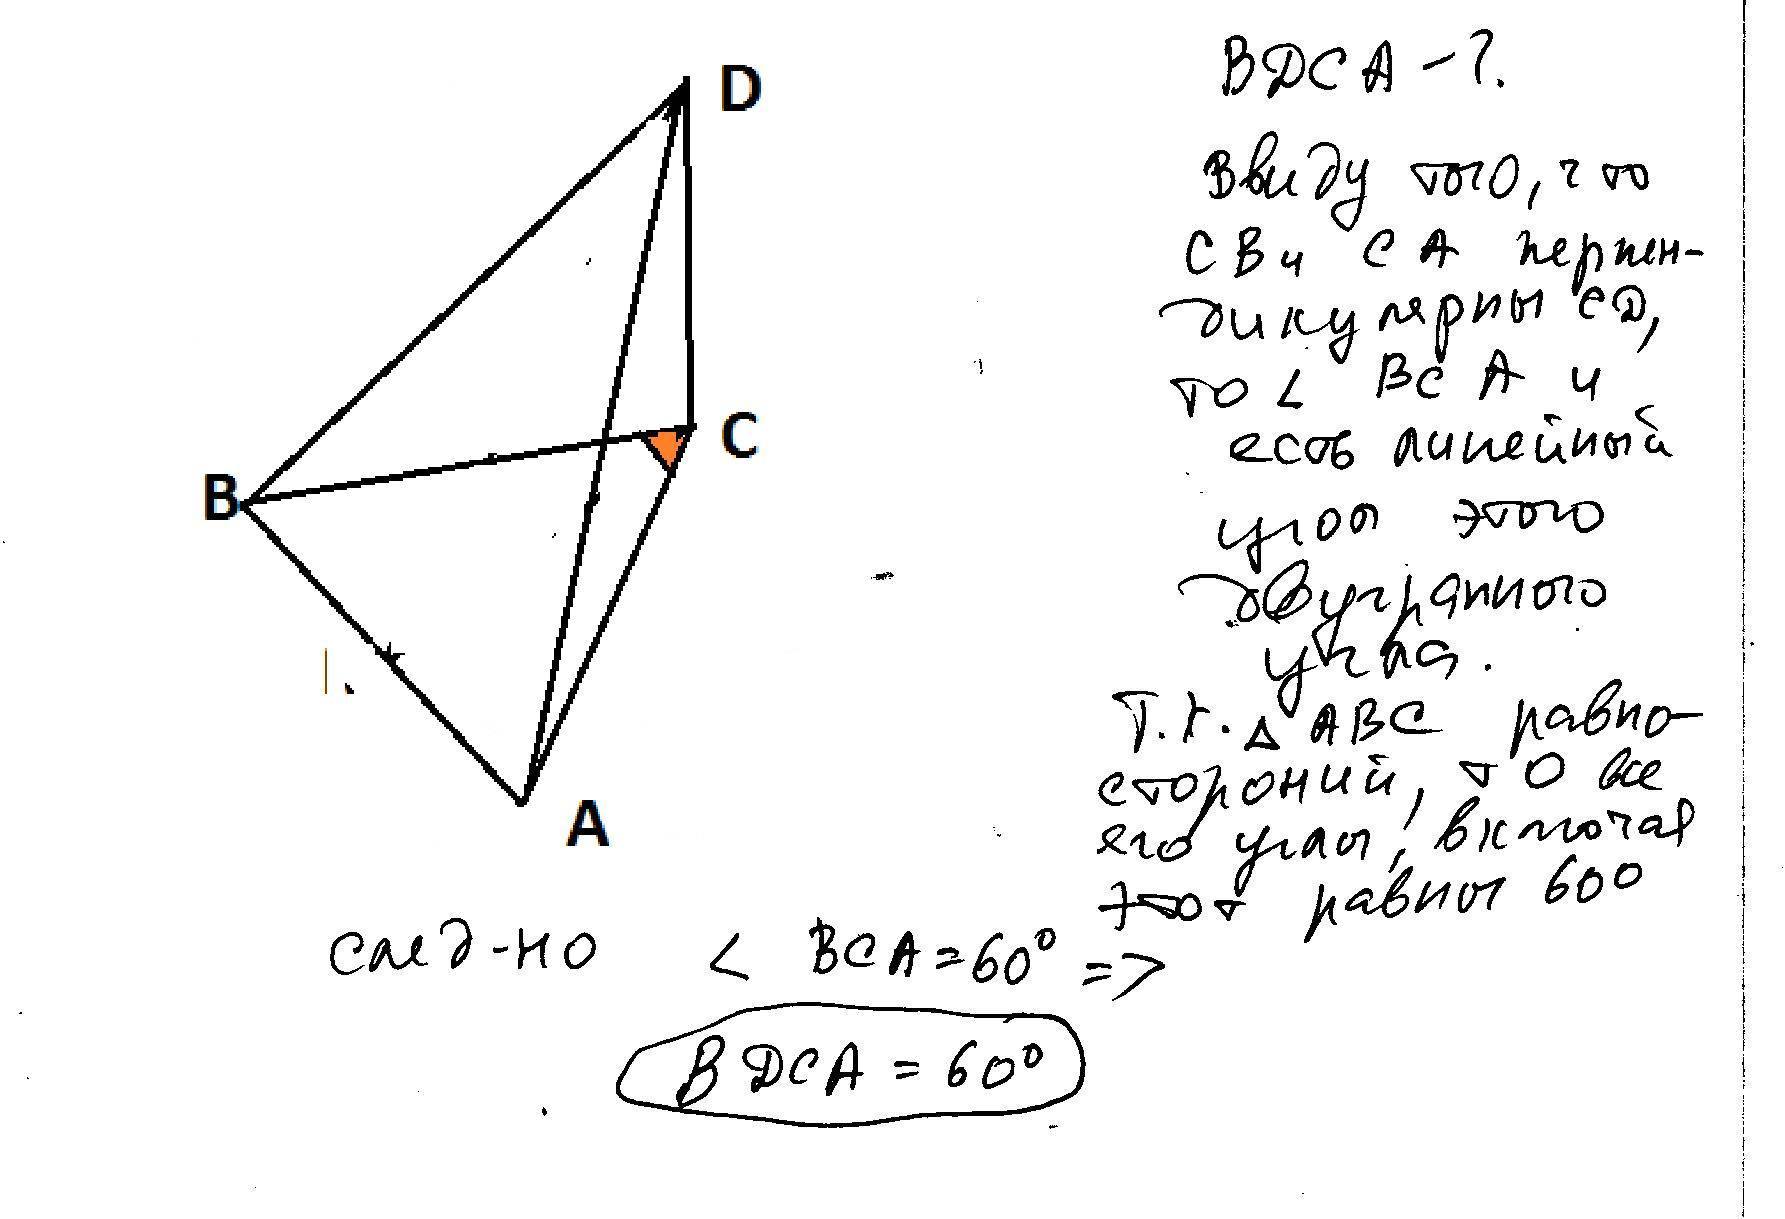 D
C
B
A
BDCA - ?.
Ввиду того, что
CB и CA перпен-
дикулярны CD,
то < BCA и
есть линейный
угол этого
двугранного
угла.
Т.к. △ ABC равно-
стороний, то все
его углы, включая
этот равны 60°
След-но < BCA = 60° =>
BDCA = 60°